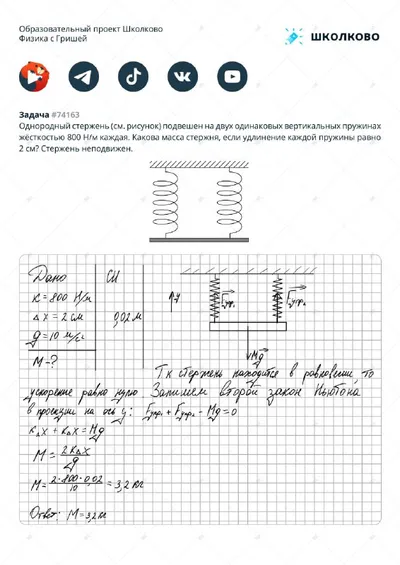 Образовательный проект Школково
Физика с Гришей
ШКОЛКОВО
Задача #74163
Однородный стержень (см. рисунок) подвешен на двух одинаковых вертикальных пружинах
жёсткостью 800 Н/м каждая. Какова масса стержня, если удлинение каждой пружины равно
2 см? Стержень неподвижен.
Дано
СИ
к = 800 Н/м
Δx = 2 см
0,02 м
g = 10 м/с²
M - ?
↑y
Fупр₁
Fупр₂
Mg
Тк стержень находится в равновесии, то
ускорение равно нулю. Запишем второй закон Ньютона
в проекции на ось y: Fупр₁ + Fупр₂ - Mg = 0
кΔx + кΔx = Mg
M = 2кΔx/g
M = 2·800·0,02/10 = 3,2 кг
Ответ: M = 3,2 кг